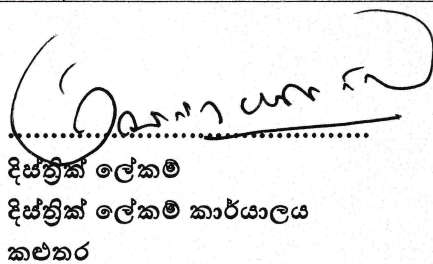 දිස්ත්‍රික් ලේකම්
දිස්ත්‍රික් ලේකම් කාර්යාලය
කළුතර